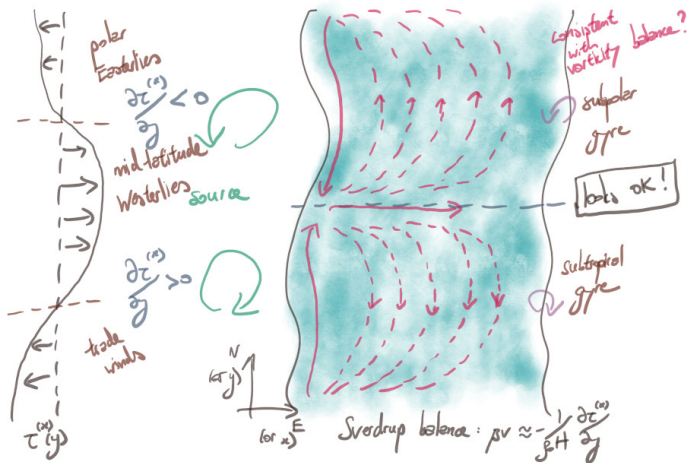 polar
Easterlies
∂τ⁽ˣ⁾/∂y < 0
mid-latitude
Westerlies
source
∂τ⁽ˣ⁾/∂y > 0
trade
winds
τ⁽ˣ⁾(y)
N
(or y)
E
(or x)
consistent
with
vorticity balance?
subpolar
gyre
looks OK!
subtropical
gyre
Sverdrup balance: βv ≈ - 1/ρ₀H ∂τ⁽ˣ⁾/∂y